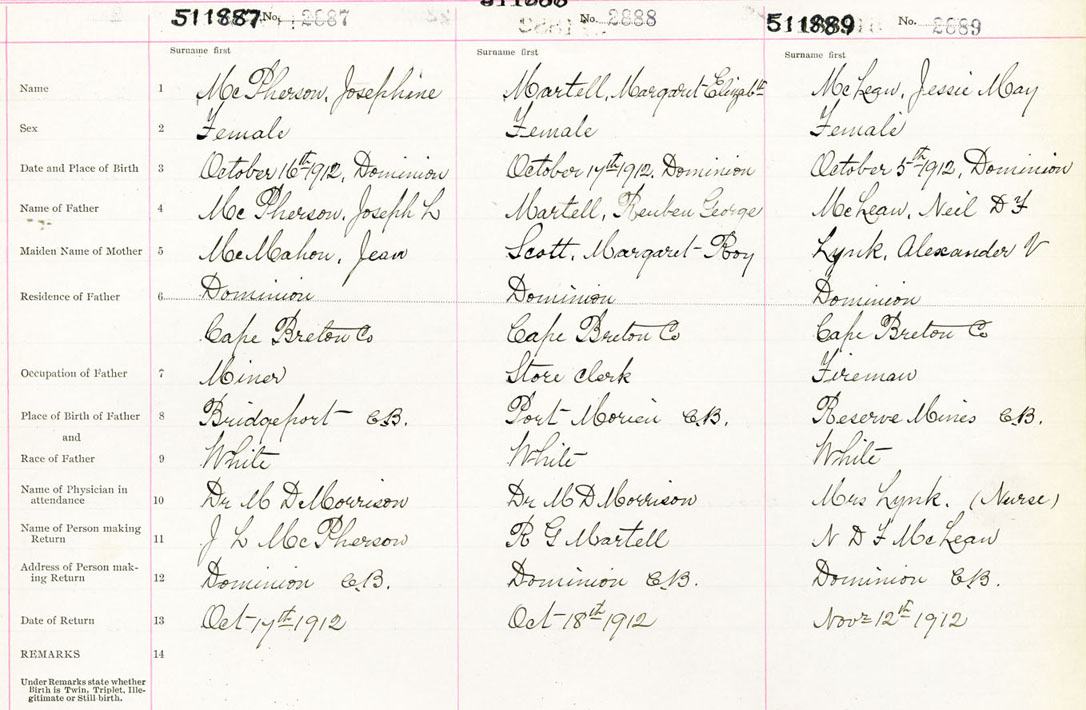 511887 No. 2887
511888 No. 2888
511889 No. 2889
Surname first Surname first Surname first
Name 1 McPherson, Josephine Martell, Margaret Elizabth McLean, Jessie May
Sex 2 Female Female Female
Date and Place of Birth 3 October 16th 1912, Dominion October 17th 1912, Dominion October 5th 1912, Dominion
Name of Father 4 McPherson, Joseph L Martell, Reuben George McLean, Neil D F
Maiden Name of Mother 5 McMahon, Jean Scott, Margaret Roy Lynk, Alexander V
Residence of Father 6 Dominion Dominion Dominion
Cape Breton Co Cape Breton Co Cape Breton Co
Occupation of Father 7 Miner Store clerk Fireman
Place of Birth of Father 8 Bridgeport C.B. Port Morien C.B. Reserve Mines C.B.
and
Race of Father 9 White White White
Name of Physician in
attendance 10 Dr M D Morrison Dr M D Morrison Mrs Lynk. (Nurse)
Name of Person making
Return 11 J L McPherson R G Martell N D F McLean
Address of Person mak-
ing Return 12 Dominion C.B. Dominion C.B. Dominion C.B.
Date of Return 13 Oct 17th 1912 Oct 18th 1912 Nov 12th 1912
REMARKS 14
Under Remarks state whether
Birth is Twin, Triplet, Ille-
gitimate or Still birth.